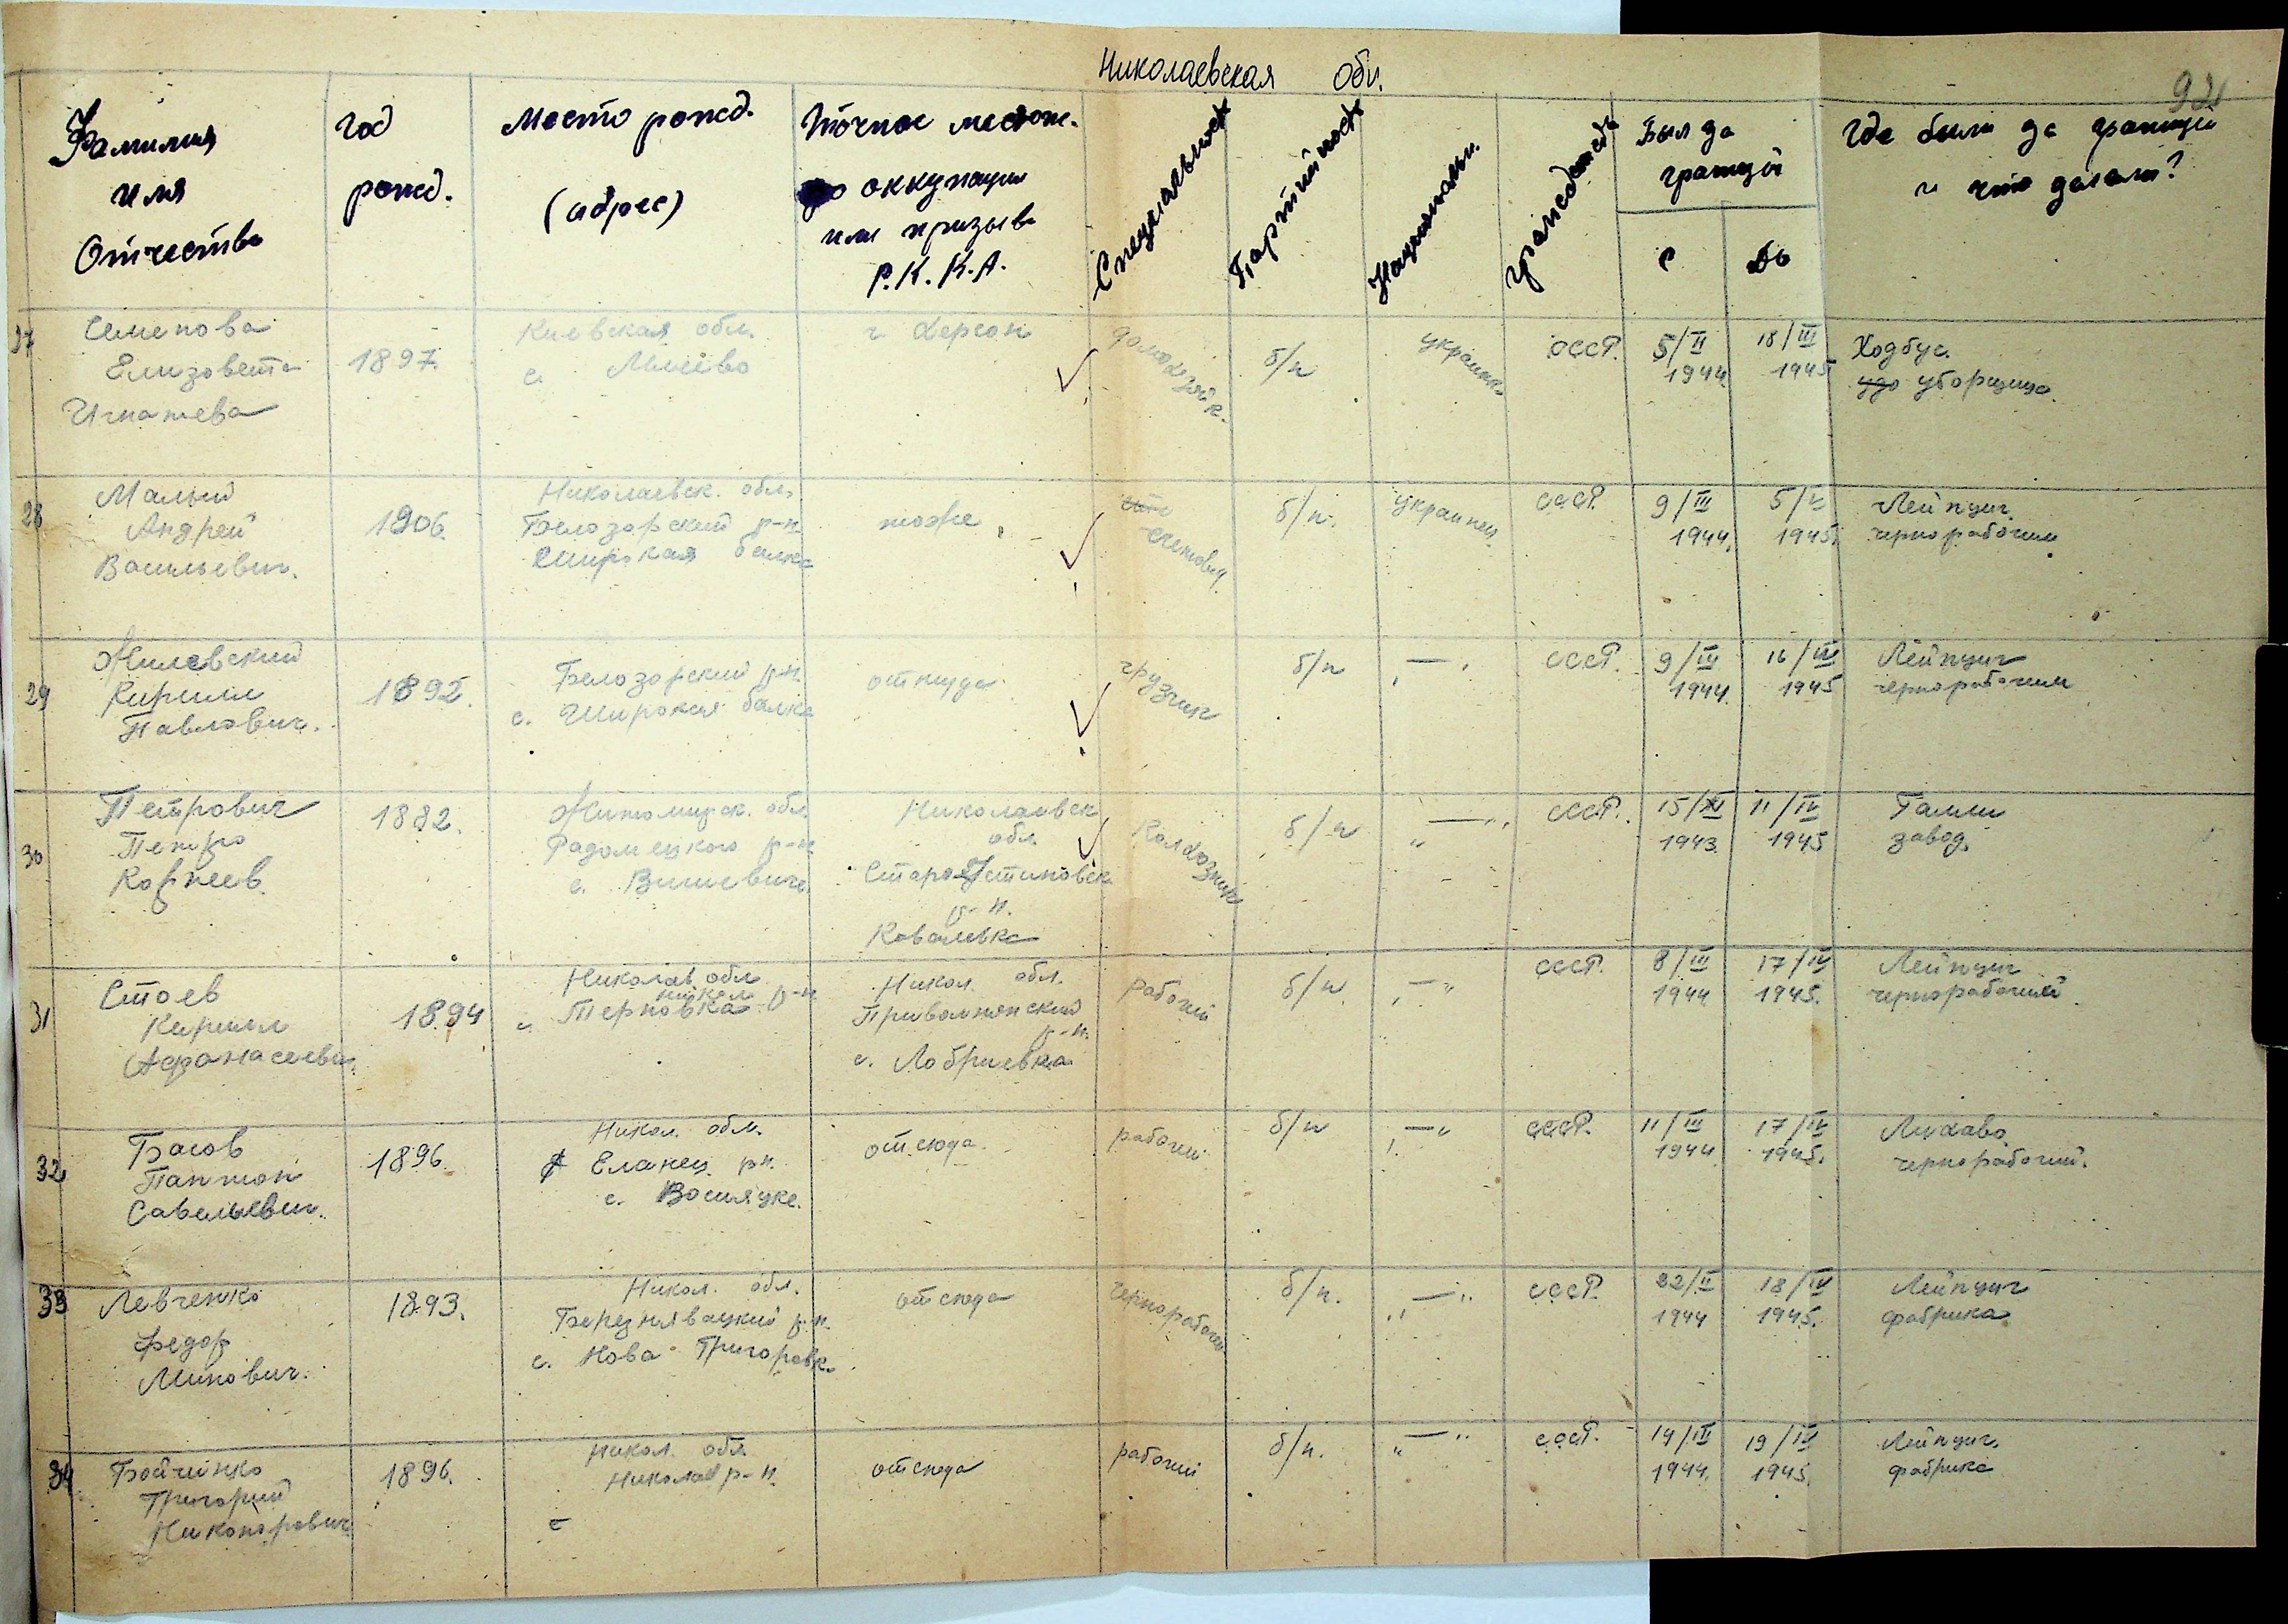 Николаевская Обл.
92
Фамилия
имя
Отчество
год
рожд.
Место рожд.
(адрес)
Точное местож.
до оккупации
или призыва
Р.К.К.А.
Специальность
Партийность
Национальн.
гражданств
Был за
границей
с
до
Где были за границей
и что делали?
27
Семенова
Елизовета
Игнатева
1897.
Киевская обл.
с. Млиево
г. Херсон
домохозяйк.
б/п
украинк.
СССР.
5/II
1944
18/III
1945
уборщица.
28
Малый
Андрей
Васильевич.
1906.
Николаевск. обл.
Белозорский р-н
Широкая балка
тоже
счетовод
б/п.
Украинец
СССР.
9/III
1944.
5/V
1945.
Лейпциг
чернорабочим
29
Жилевский
Кирилл
Павлович.
1892.
Белозорский р-н.
с. Широкая балка
оттуда
грузчик
б/п
— " —
СССР.
9/III
1944.
16/III
1945
Лейпциг
чернорабочим
30
Петрович
Петро
Корнеев.
1882.
Житомирск. обл.
Радомецкого р-н
с. Вишевичи
Николаевск
обл.
Староустиновск
р-н.
Ковалевка
Колхозник
б/п
" — "
СССР.
15/XI
1943.
11/IV
1945
Галли
завод.
31
Стоев
Кирилл
Афанасеевич.
1894
Николав. обл
никол р-н
с. Терновка
Никол. обл.
Привольнянский
р-н.
с. Лобриевка
Рабочий
б/п
" — "
СССР.
8/III
1944
17/IV
1945.
Лейпциг
чернорабочий.
32
Басов
Пантон
Савельевич.
1896.
Никол. обл.
Еланец. рн.
с. Восияцке.
отсюда.
рабочий
б/п
" — "
СССР.
11/III
1944
17/IV
1945.
Лихаво
чернорабочий.
33
Левченко
Федор
Минович.
1893.
Никол. обл.
Березнявацкий р.н.
с. Нова-Григоровк.
отсюда
чернорабочий
б/п.
" — "
СССР.
22/II
1944
18/IV
1945.
Лейпциг
фабрика
34
Бойченко
Григорий
Никонорович
1896.
Никол. обл
Николав р-н.
с
отсюда
рабочий
б/п.
" — "
СССР.
19/III
1944.
19/IV
1945.
Лейпциг.
фабрика